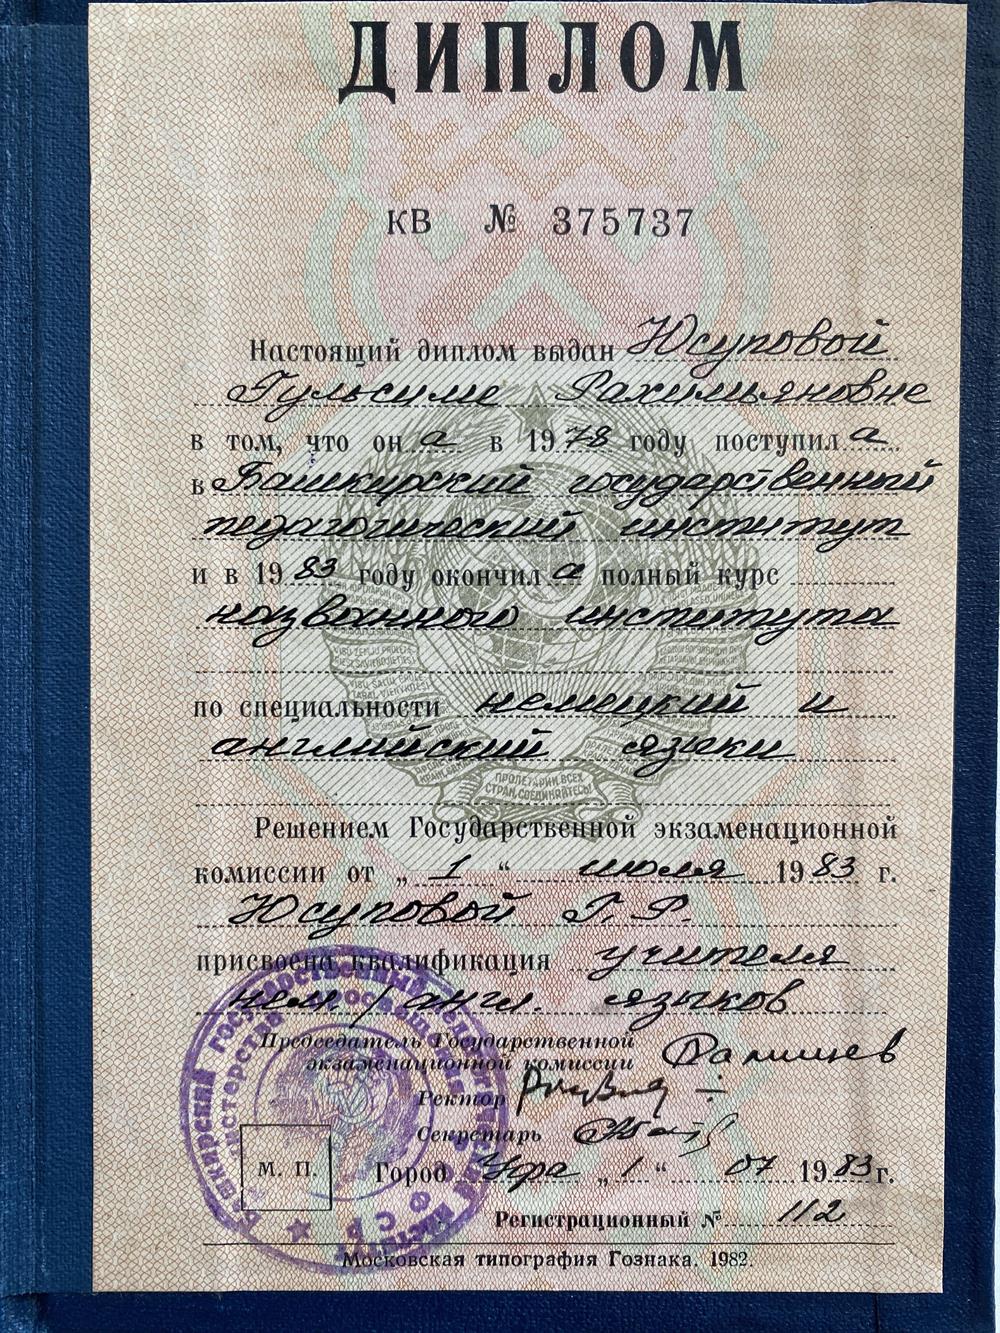 ДИПЛОМ
КВ № 375737
Настоящий диплом выдан Юсуповой
Гульсиме Рахимьяновне
в том, что он а в 19 78 году поступил а
в Башкирский государственный
педагогический институт
и в 19 83 году окончил а полный курс
названного института
по специальности немецкий и
английский языки
ПРОЛЕТАРИИ ВСЕХ
СТРАН, СОЕДИНЯЙТЕСЬ!
Решением Государственной экзаменационной
комиссии от „ 1 “ июля 19 83 г.
Юсуповой Г. Р.
присвоена квалификация учителя
нем / англ. языков
Председатель Государственной
экзаменационной комиссии
Ректор
Секретарь
М. П. Город Уфа „ 1 “ 07 19 83 г.
Регистрационный № 112
Московская типография Гознака. 1982.